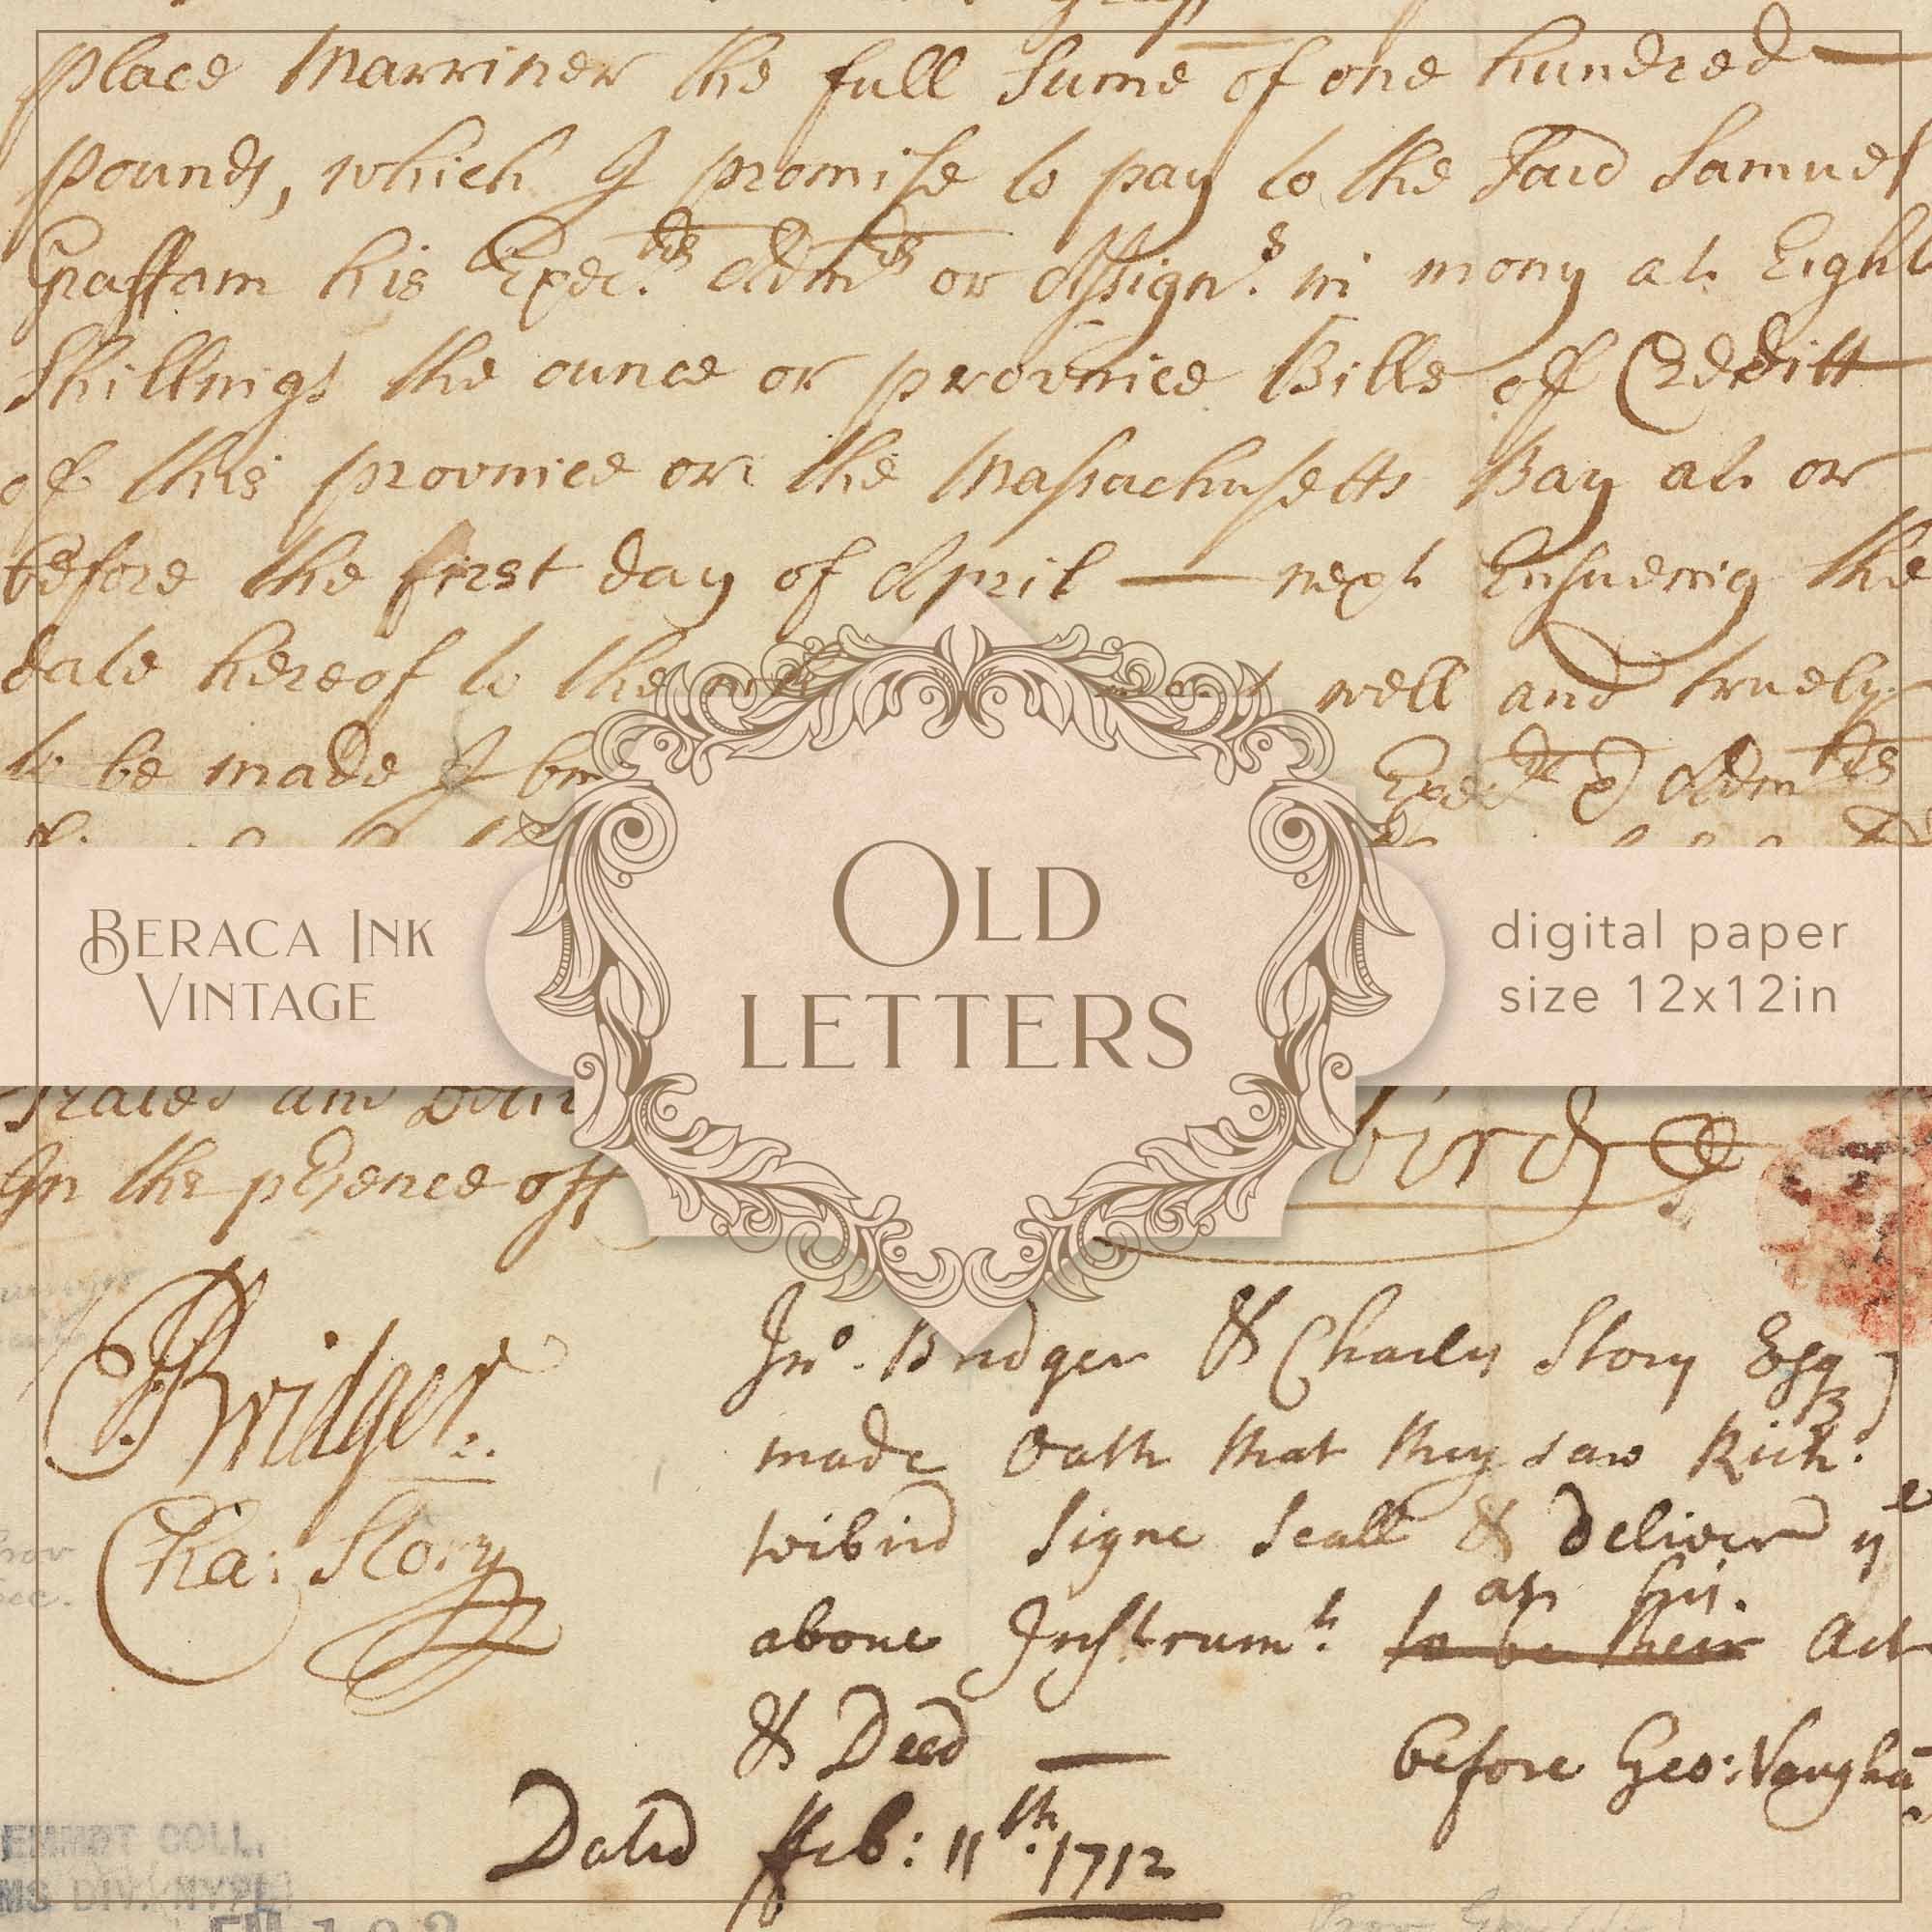 place Marriner the full Sume of one hundred
pounds, which I promise to pay to the Said Samuel
Gaffam his Execrs. Admrs or Assigns. in mony at Eight
Shillings the ounce or province Bills of Credditt
of this province or the Massachusetts Bay at or
before the first day of April — next Ensueing the
date hereof to the well and truely
to be made I Admtrs
OLD
LETTERS
BERACA INK
VINTAGE
digital paper
size 12x12in
and
In the presence off
bird
Bridger
Cha: Story
Jno. Bridger & Charles Story Esqs
made Oath that they saw Rich.
wibird Signe Seall & deliver ye
as his.
above Instrumt. to be their Act
& Deed —
before Geo: Vaughan
Dated ffeb: 11th. 1712
EMMET COLL.
MS DIV. NYPL